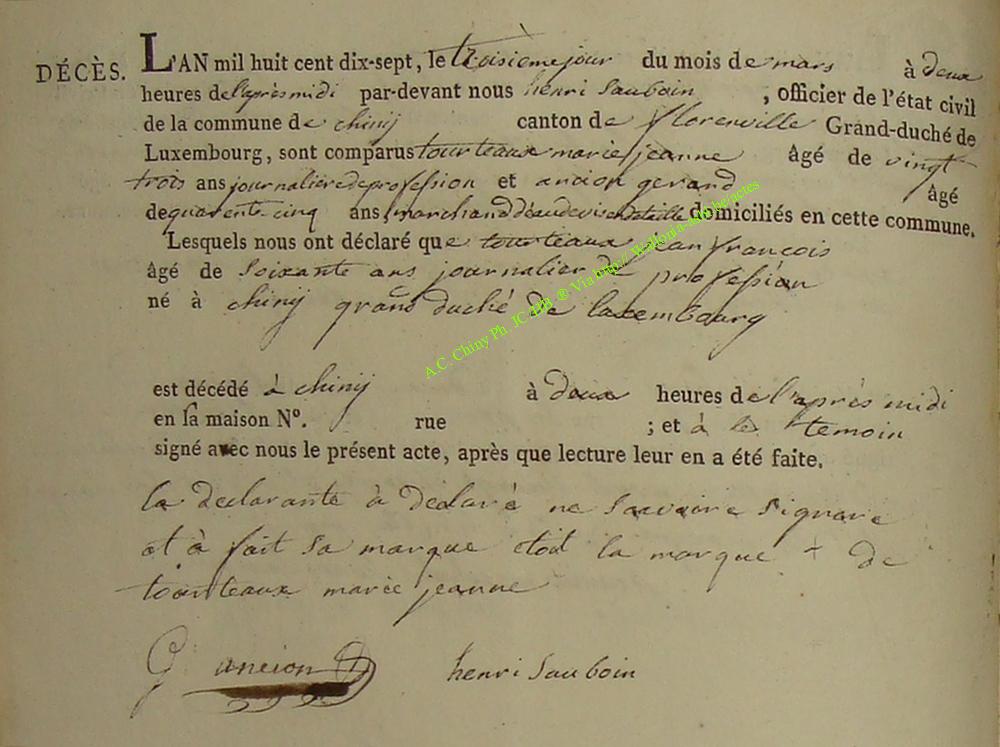 DÉCÈS. L'AN mil huit cent dix-sept, le troisième jour du mois de mars à deux
heures de l'après midi par-devant nous henri Sauboin , officier de l'état civil
de la commune de chinij canton de florenville Grand-duché de
Luxembourg, sont comparus tourteaux marie jeanne âgé de vingt
trois ans journalière de profession et ancion gerard âgé
de quarente cinq ans, marchand déau de vie en detaille domiciliés en cette commune.
Lesquels nous ont déclaré que tourteaux jean françois
âgé de soixante ans journalier de profession
né à chinij grand duché de luxembourg
A.C. Chiny Ph. JCAHB ® Via http://Wallonia-asbl.be/actes
est décédé à chinij à deux heures de l'après midi
en sa maison N°. rue ; et à le temoin
signé avec nous le présent acte, après que lecture leur en a été faite.
la declarante à déclaré ne savoire signare
et à fait sa marque etoit la marque + de
tourteaux marie jeanne
G ancion henri Sauboin